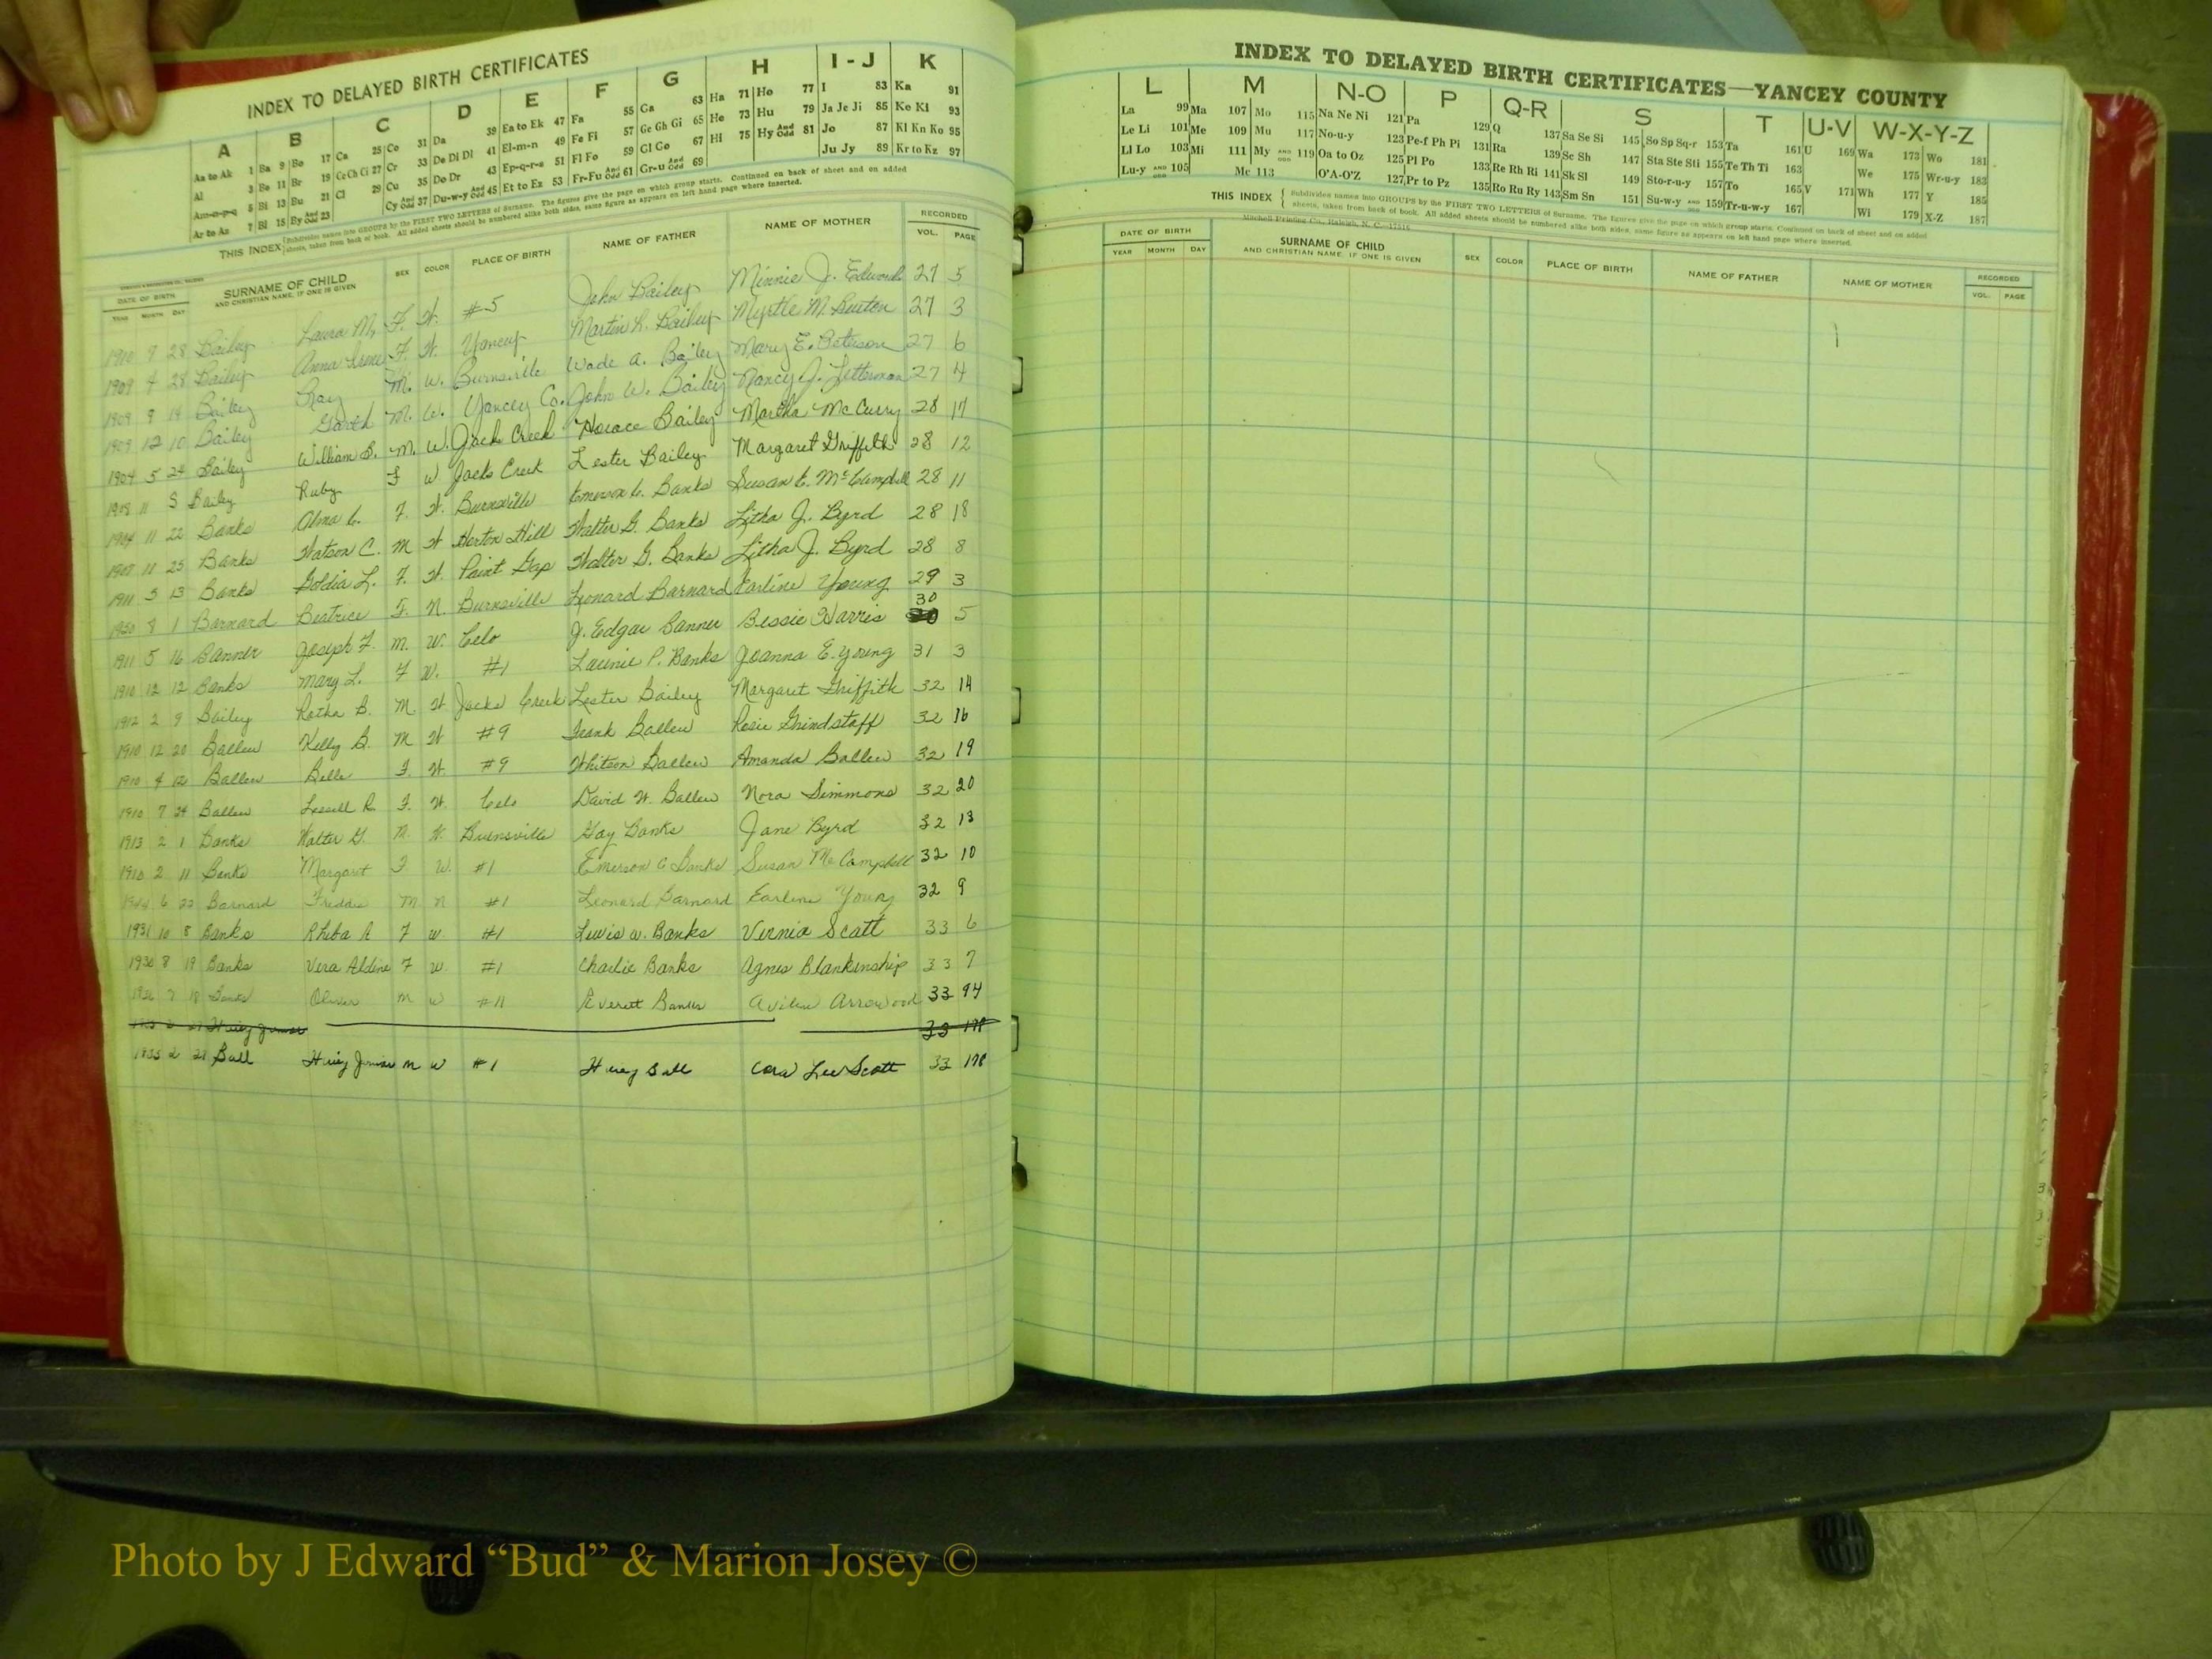 INDEX TO DELAYED BIRTH CERTIFICATES
A B C D E F G H I - J K
Aa to Ak 1 Ba 9 Bo 17 Ca 25 Co 31 Da 39 Ea to Ek 47 Fa 55 Ga 63 Ha 71 Ho 77 I 83 Ka 91
Al 3 Be 11 Br 19 Ce Ch Ci 27 Cr 33 De Di Dl 41 El-m-n 49 Fe Fi 57 Ge Gh Gi 65 He 73 Hu 79 Ja Je Ji 85 Ke Ki 93
Am-n-p-q 5 Bi 13 Bu 21 Cl 29 Cu 35 Do Dr 43 Ep-q-r-s 51 Fl Fo 59 Gl Go 67 Hi 75 Hy And Odd 81 Jo 87 Kl Kn Ko 95
Ar to Az 7 Bl 15 By And Odd 23 Cy And Odd 37 Du-w-y And Odd 45 Et to Ez 53 Fr-Fu And Odd 61 Gr-u And Odd 69 Ju Jy 89 Kr to Kz 97
THIS INDEX Subdivides names into GROUPS by the FIRST TWO LETTERS of Surname. The figures give the page on which group starts. Continued on back of sheet and on added
sheets, taken from back of book. All added sheets should be numbered alike both sides, same figure as appears on left hand page where inserted.
DATE OF BIRTH SURNAME OF CHILD SEX COLOR PLACE OF BIRTH NAME OF FATHER NAME OF MOTHER RECORDED
YEAR MONTH DAY AND CHRISTIAN NAME, IF ONE IS GIVEN VOL. PAGE
1910 7 28 Bailey Laura M. F. W. #5 John Bailey Minnie J. Edwards 27 5
1909 4 28 Bailey Anna F. W. Yancey Martin L. Bailey Myrtle M. Burton 27 3
1909 9 19 Bailey Ray M. W. Burnsville Wade A. Bailey Mary E. Peterson 27 6
1909 12 10 Bailey Garth M. W. Yancey Co. John W. Bailey Nancy J. Letterman 27 4
1904 5 24 Bailey William B. M. W. Jack Creek Horace Bailey Martha McCurry 28 17
1908 11 5 Bailey Ruby F W Jacks Creek Lester Bailey Margaret Griffith 28 12
1904 11 22 Banks Alma C. F. W. Burnsville Emerson C. Banks Susan E. McCampbell 28 11
1907 11 25 Banks Watson C. M W Horton Hill Walter G. Banks Litha J. Byrd 28 18
1911 5 13 Banks Goldia L. F. W. Paint Gap Walter G. Banks Litha J. Byrd 28 8
1930 8 1 Barnard Beatrice F. N. Burnsville Leonard Barnard Earline Young 29 3
1911 5 16 Banner Joseph F. M. W. Celo J. Edgar Banner Bessie Harris 30 5
1910 12 12 Banks Mary L. F W. #1 Launie P. Banks Joanna E. Young 31 3
1912 2 9 Bailey Rotha B. M. W Jacks Creek Lester Bailey Margaret Griffith 32 14
1910 12 20 Ballew Kelly B. M W #9 Frank Ballew Rosie Grindstaff 32 16
1910 4 12 Ballew Belle F. W. #9 Whitson Ballew Amanda Ballew 32 19
1910 7 24 Ballew R. F. W. Celo David W. Ballew Nora Simmons 32 20
1913 2 1 Banks Walter G. M. W. Burnsville Gay Banks Jane Byrd 32 13
1910 2 11 Banks Margaret F W. #1 Emerson C Banks Susan McCampbell 32 10
6 22 Barnard Freddie M N #1 Leonard Barnard Earline Young 32 9
1931 10 8 Banks Rheba R F W. #1 Lewis W. Banks Vernia Scott 33 6
1930 8 19 Banks Vera Aldine F W. #1 Charlie Banks Agnes Blankenship 33 7
7 18 Banks Oliver M W #11 Everett Banks Arrowood 33 94
33 178
2 21 Ball Junior M W #1 Ball Cora Lee Scott 33 178
INDEX TO DELAYED BIRTH CERTIFICATES—YANCEY COUNTY
L M N-O P Q-R S T U-V W-X-Y-Z
La 99 Ma 107 Mo 115 Na Ne Ni 121 Pa 129 Q 137 Sa Se Si 145 So Sp Sq-r 153 Ta 161 U 169 Wa 173 Wo 181
Le Li 101 Me 109 Mu 117 No-u-y 123 Pe-f Ph Pi 131 Ra 139 Sc Sh 147 Sta Ste Sti 155 Te Th Ti 163 We 175 Wr-u-y 183
Ll Lo 103 Mi 111 My AND ODD 119 Oa to Oz 125 Pl Po 133 Re Rh Ri 141 Sk Sl 149 Sto-r-u-y 157 To 165 V 171 Wh 177 Y 185
Lu-y AND ODD 105 Mc 113 O'A-O'Z 127 Pr to Pz 135 Ro Ru Ry 143 Sm Sn 151 Su-w-y AND ODD 159 Tr-u-w-y 167 Wi 179 X-Z 187
THIS INDEX Subdivides names into GROUPS by the FIRST TWO LETTERS of Surname. The figures give the page on which group starts. Continued on back of sheet and on added
sheets, taken from back of book. All added sheets should be numbered alike both sides, same figure as appears on left hand page where inserted.
Mitchell Printing Co., Raleigh, N. C.—17516
DATE OF BIRTH SURNAME OF CHILD SEX COLOR PLACE OF BIRTH NAME OF FATHER NAME OF MOTHER RECORDED
YEAR MONTH DAY AND CHRISTIAN NAME, IF ONE IS GIVEN VOL. PAGE
Photo by J Edward “Bud” & Marion Josey ©